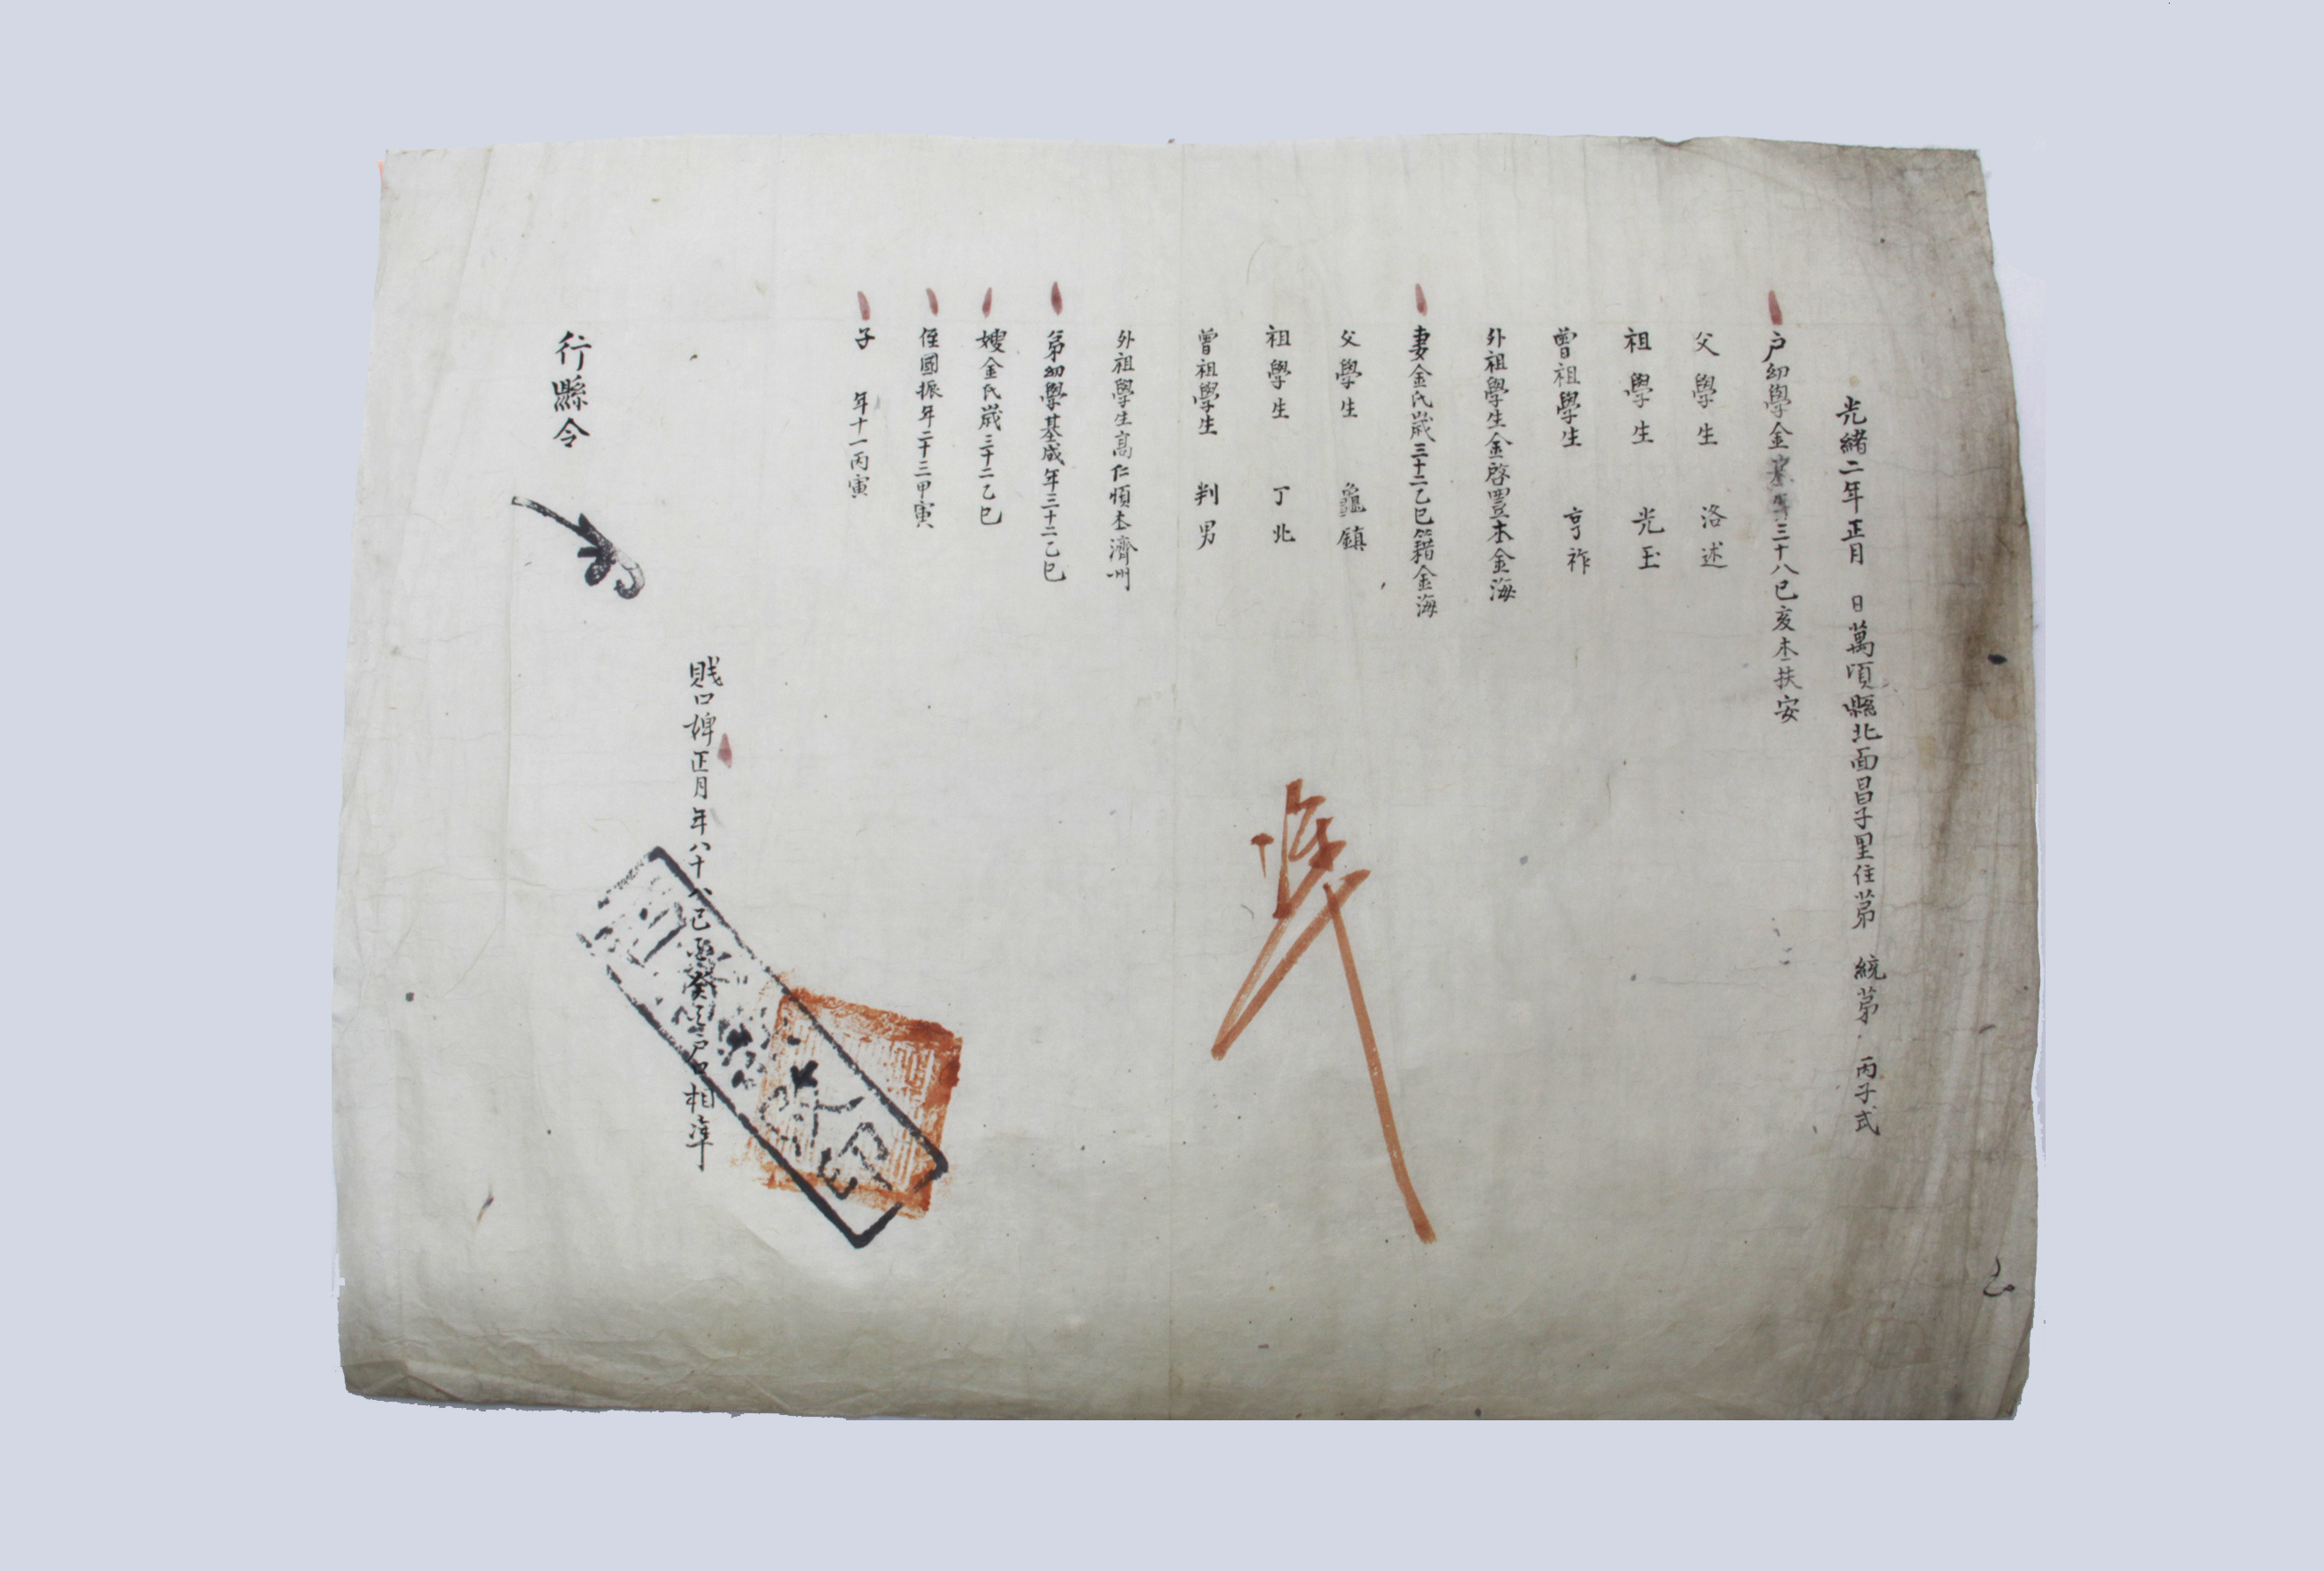 光緖二年正月 日萬頃縣北面昌子里住第 統第 丙子式
戶幼學金基 三十八己亥本扶安
父學生 洛述
祖學生 光玉
曾祖學生 亨祚
外祖學生金啓豐本金海
妻金氏歲三十二乙巳籍金海
父學生 龜鎭
祖學生 丁北
曾祖學生 判男
外祖學生高仁順本濟州
弟幼學基成年三十二乙巳
嫂金氏歲三十二乙巳
侄國振年二十三甲寅
子 年十一丙寅
賤口婢正月年八十八己 癸 戶口相準
行縣令
準